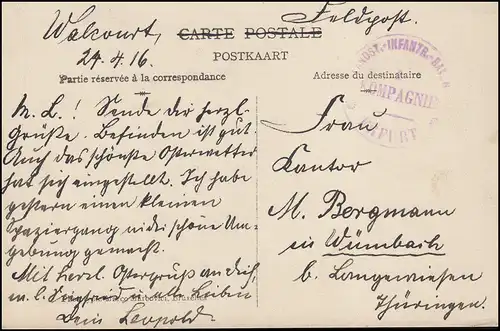 Walcourt,
24.4.16.
CARTE POSTALE
POSTKAART
Feldpost.
Partie réservée à la correspondance
Adresse du destinataire
INFANTR.-BAT.
KOMPAGNIE
ERFURT
M. L.! Sende dir herzl.
Grüße. Befinden ist gut.
Auch das schönste Osterwetter
hat sich eingestellt. Ich habe
gestern einen kleinen
Spaziergang in die schöne Um-
gebung gemacht.
Mit herzl. Ostergruß an dich,
m. l. Siegfried u. alle Lieben
Dein Leopold.
Frau
Kantor
M. Bergmann
in Wümbach
b. Langewiesen
Thüringen.